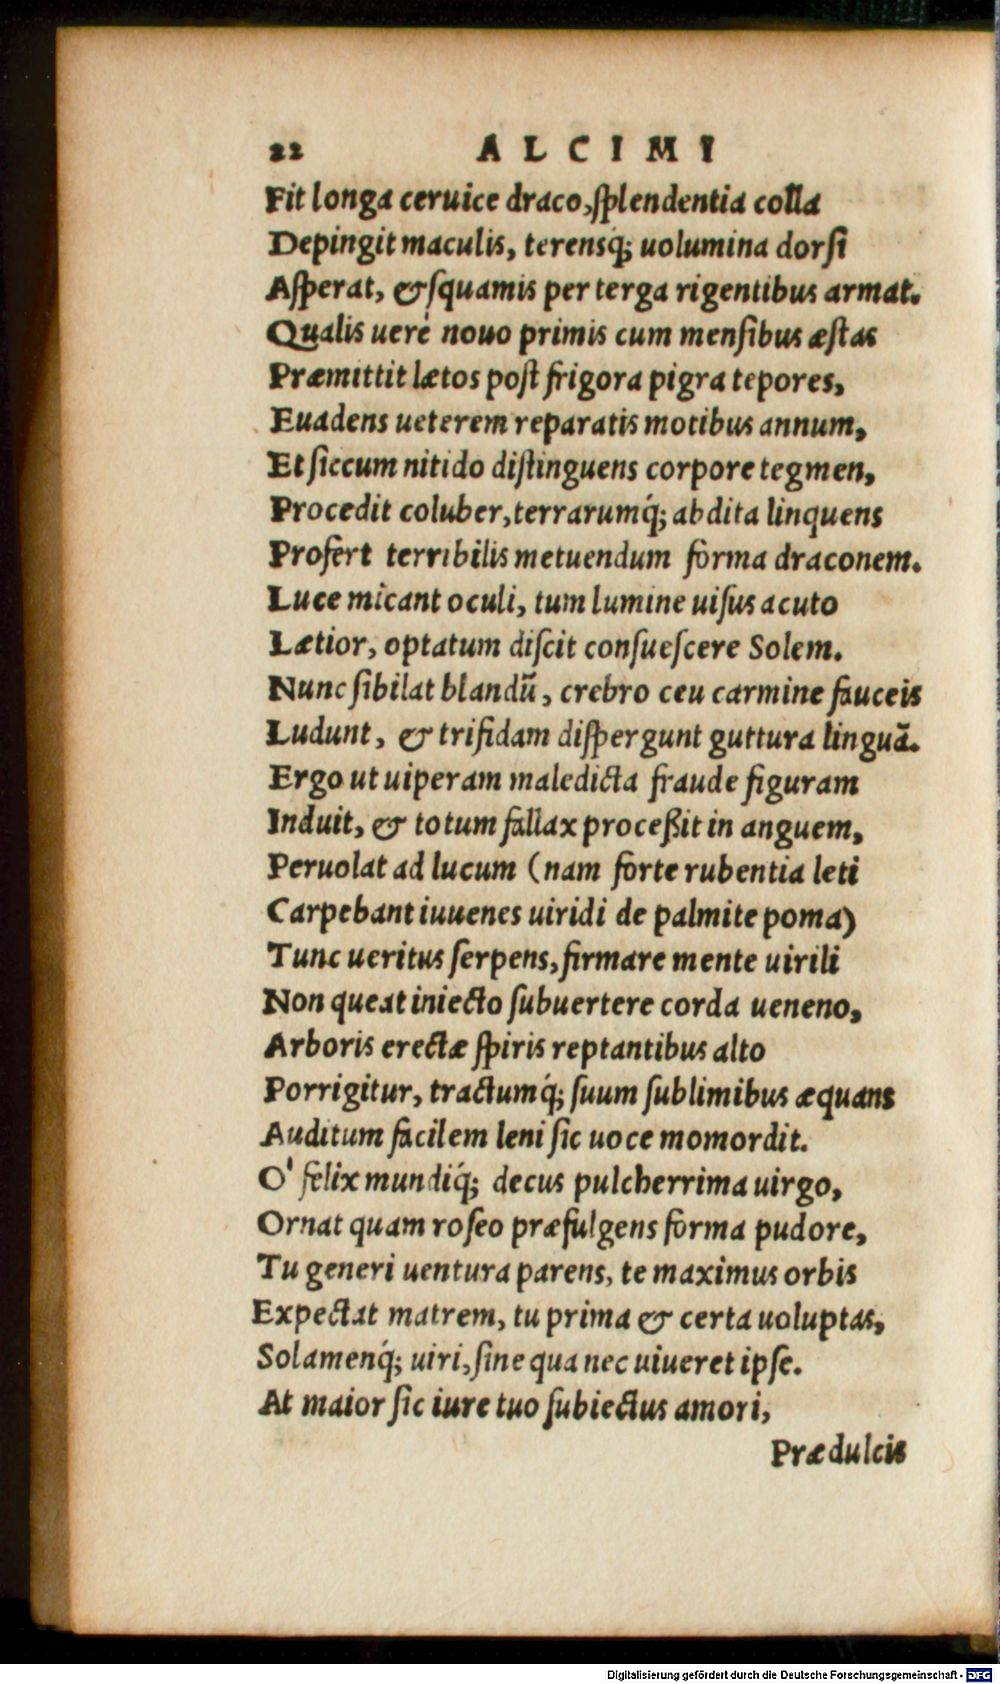 22 ALCIMI
Fit longa ceruice draco, ſplendentia colla
Depingit maculis, terensq́; uolumina dorſi
Aſperat, & ſquamis per terga rigentibus armat.
Qualis uere nouo primis cum menſibus æſtas
Præmittit lætos poſt frigora pigra tepores,
Euadens ueterem reparatis motibus annum,
Et ſiccum nitido diſtinguens corpore tegmen,
Procedit coluber, terrarumq́; abdita linquens
Profert terribilis metuendum forma draconem.
Luce micant oculi, tum lumine uiſus acuto
Lætior, optatum diſcit conſueſcere Solem.
Nunc ſibilat blandū, crebro ceu carmine fauceis
Ludunt, & trifidam diſpergunt guttura linguā.
Ergo ut uiperam maledicta fraude figuram
Induit, & totum fallax proceßit in anguem,
Peruolat ad lucum (nam forte rubentia leti
Carpebant iuuenes uiridi de palmite poma)
Tunc ueritus ſerpens, firmare mente uirili
Non queat iniecto ſubuertere corda ueneno,
Arboris erectæ ſpiris reptantibus alto
Porrigitur, tractumq́; ſuum ſublimibus æquans
Auditum facilem leni ſic uoce momordit.
O' felix mundiq́; decus pulcherrima uirgo,
Ornat quam roſeo præfulgens forma pudore,
Tu generi uentura parens, te maximus orbis
Expectat matrem, tu prima & certa uoluptas,
Solamenq́; uiri, ſine qua nec uiueret ipſe.
At maior ſic iure tuo ſubiectus amori,
Prædulcis
Digitalisierung gefördert durch die Deutsche Forschungsgemeinschaft - DFG